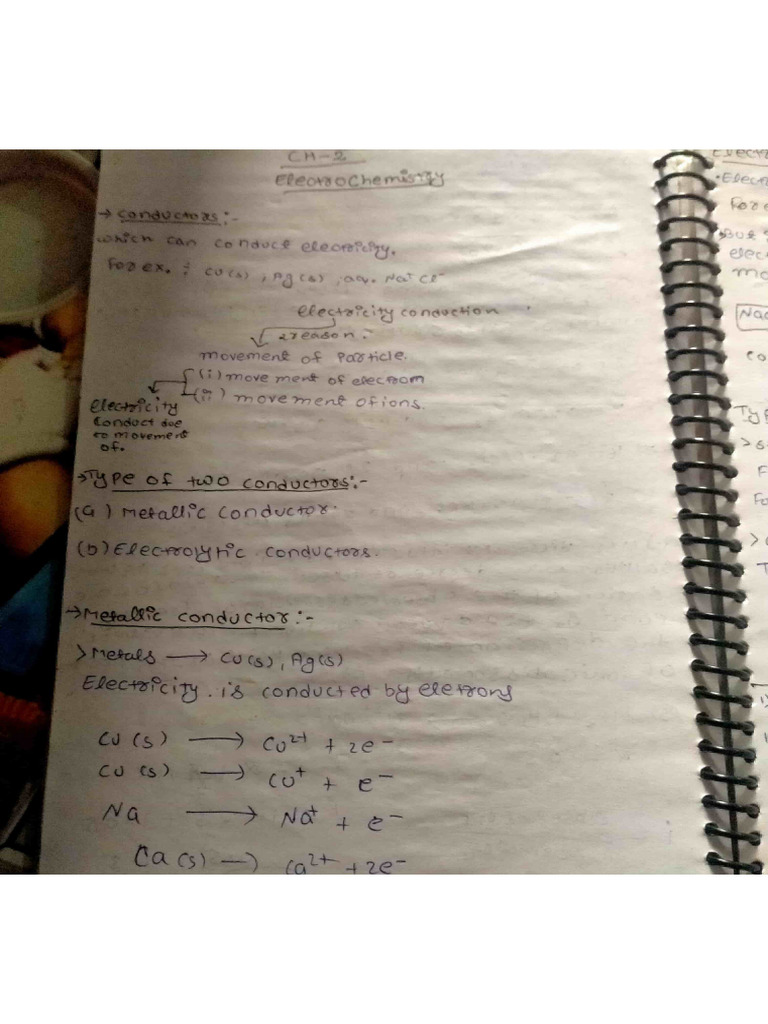 CH-2
ElectroChemistry
→ Conductors:-
which can conduct electricity.
For ex. : Cu(s), Ag(s), aq. Na⁺Cl⁻
electricity conduction
2 reason:
movement of Particle.
(i) movement of electrom
(ii) movement of ions.
electricity
conduct due
to movement
of.
→ Type of two conductors:-
(a) Metallic conductor.
(b) Electrolytic conductors.
→ Metallic conductor:-
> Metals → Cu(s), Ag(s)
Electricity. is conducted by eletrons
Cu (s) → Cu²⁺ + 2e⁻
Cu (s) → Cu⁺ + e⁻
Na → Na⁺ + e⁻
Ca (s) → Ca²⁺ + 2e⁻